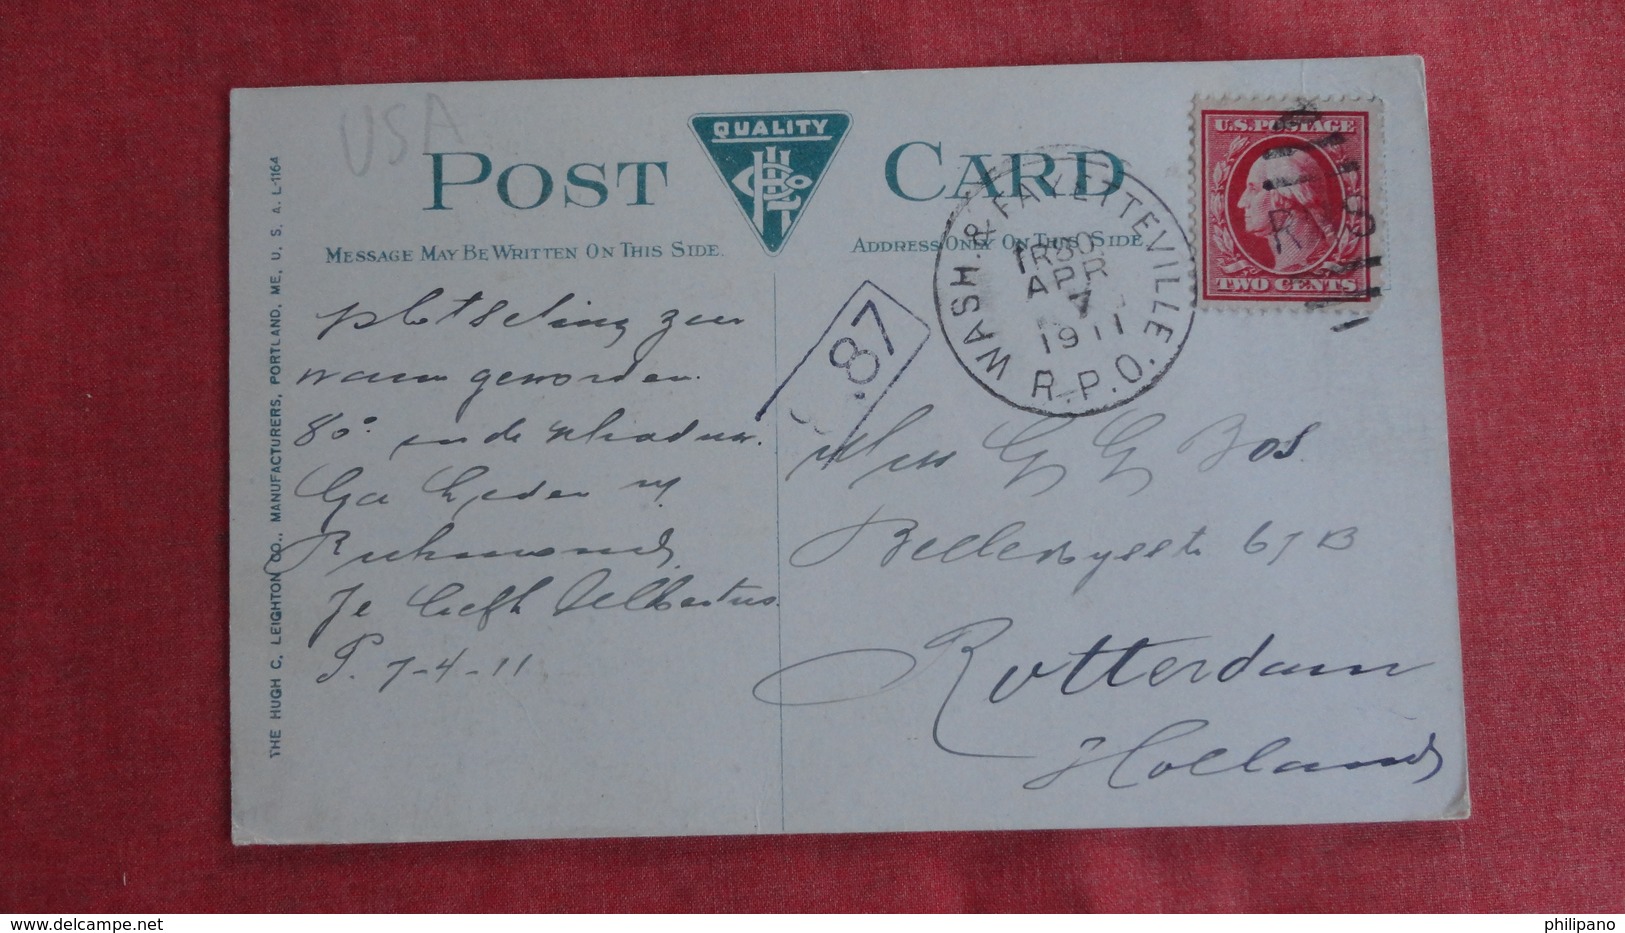 USA
POST CARD
QUALITY
MESSAGE MAY BE WRITTEN ON THIS SIDE.
ADDRESS ONLY ON THIS SIDE
THE HUGH C. LEIGHTON CO., MANUFACTURERS, PORTLAND, ME., U. S. A. L-1164
WASH. & FAYETTEVILLE. R.P.O.
TR30
APR
7
1911
U.S. POSTAGE
RMS
TWO CENTS
87
plotseling zeer
warm geworden.
80° in de schaduw.
Richmond
Je liefh Albertus
P. 7-4-11
Miss G G Bos.
67 B
Rotterdam
Holland
www.delcampe.net
philipano